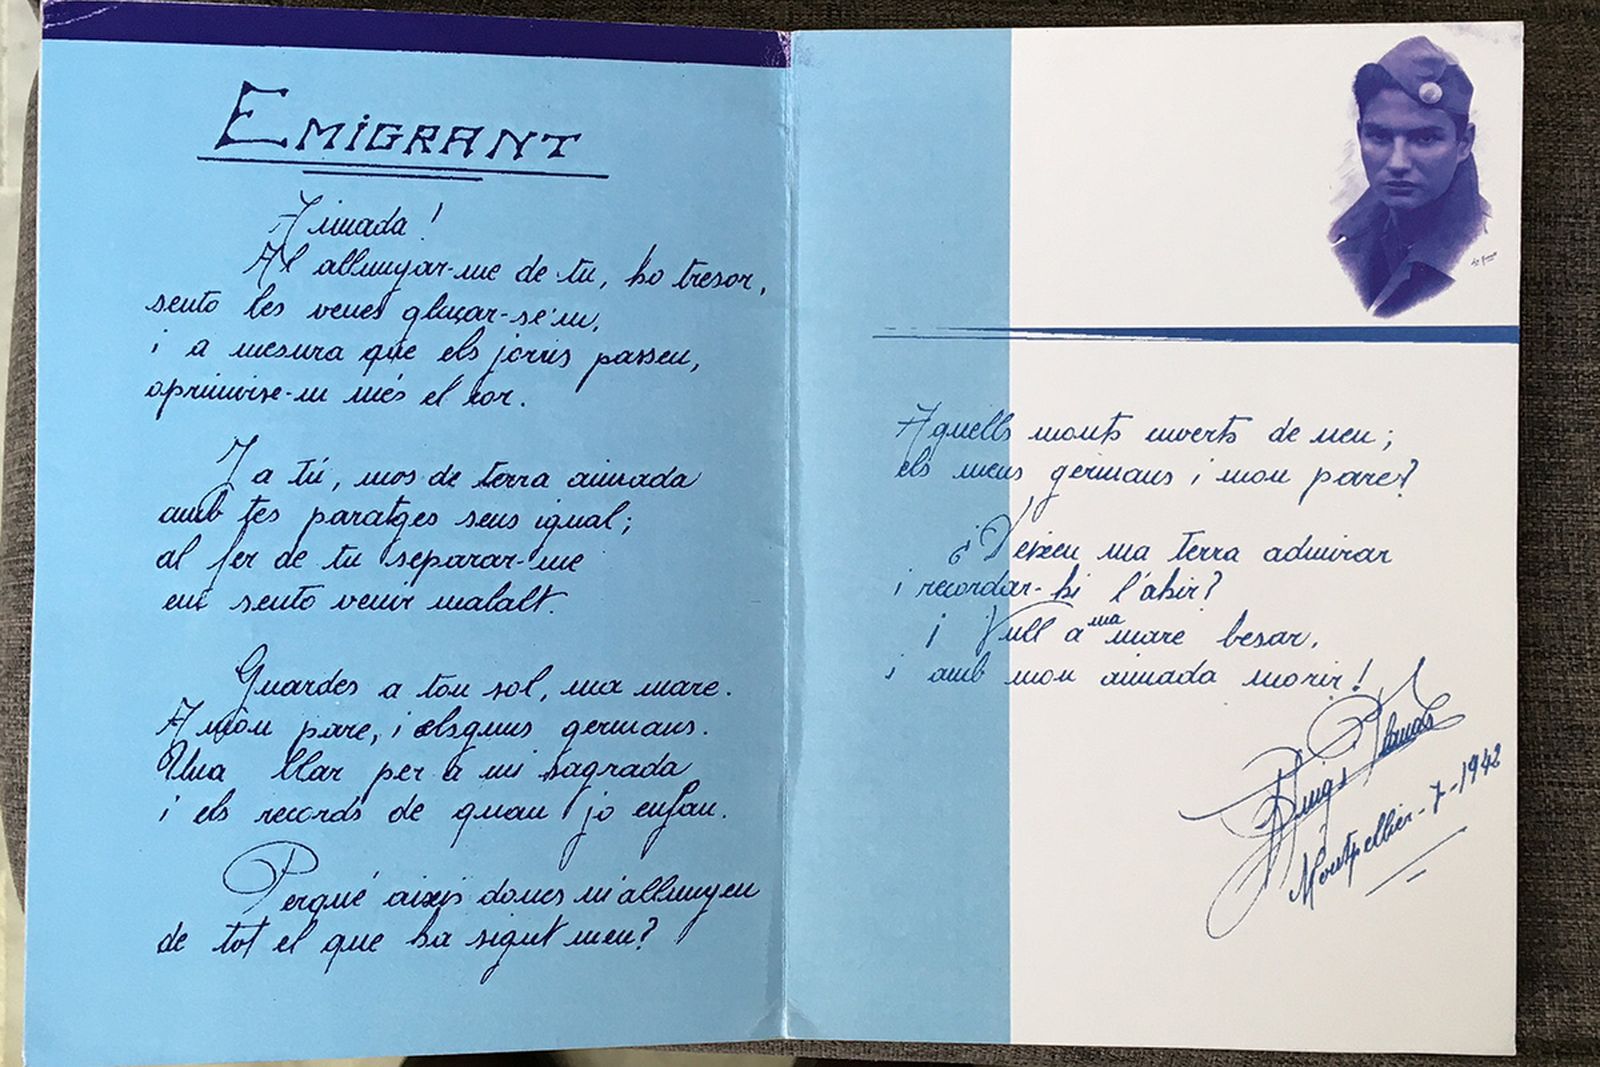 EMIGRANT
Aimada!
Al allunyar-me de tu, ho tresor,
sento les venes glaçar-se'm,
i a mesura que els jorns passen,
oprimeixe-m més el cor.
I a tú, mos de terra aimada
amb tes paratges sens igual;
al fer de tu separar-me
em sento venir malalt.
Guardes a ton sol, ma mare.
A mon pare, i els germans.
Una llar per a mi sagrada
i els records de quan jo enfan.
Perqué aixis doncs m'allunyen
de tot el que ha sigut meu?
Aquells monts coverts de neu;
els meus germans i mon pare?
¿Deixeu ma terra admirar
i recordar-hi l'ahir?
¡Vull a ma mare besar,
i amb mon aimada morir!
Puigs Planas
Montpellier-7-1942